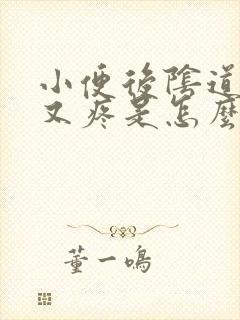 小便後陰道
又疼是怎麼
董一鳴